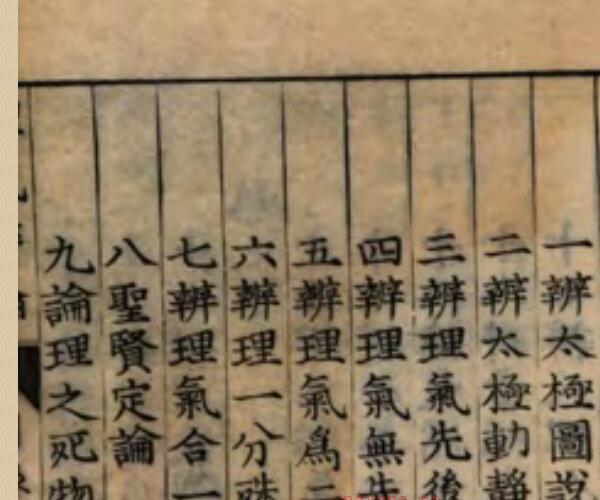 一辨太極圖說
二辨太極動靜
三辨理氣先後
四辨理氣無先
五辨理氣爲二
六辨理一分殊
七辨理氣合一
八聖賢定論
九論理之死物